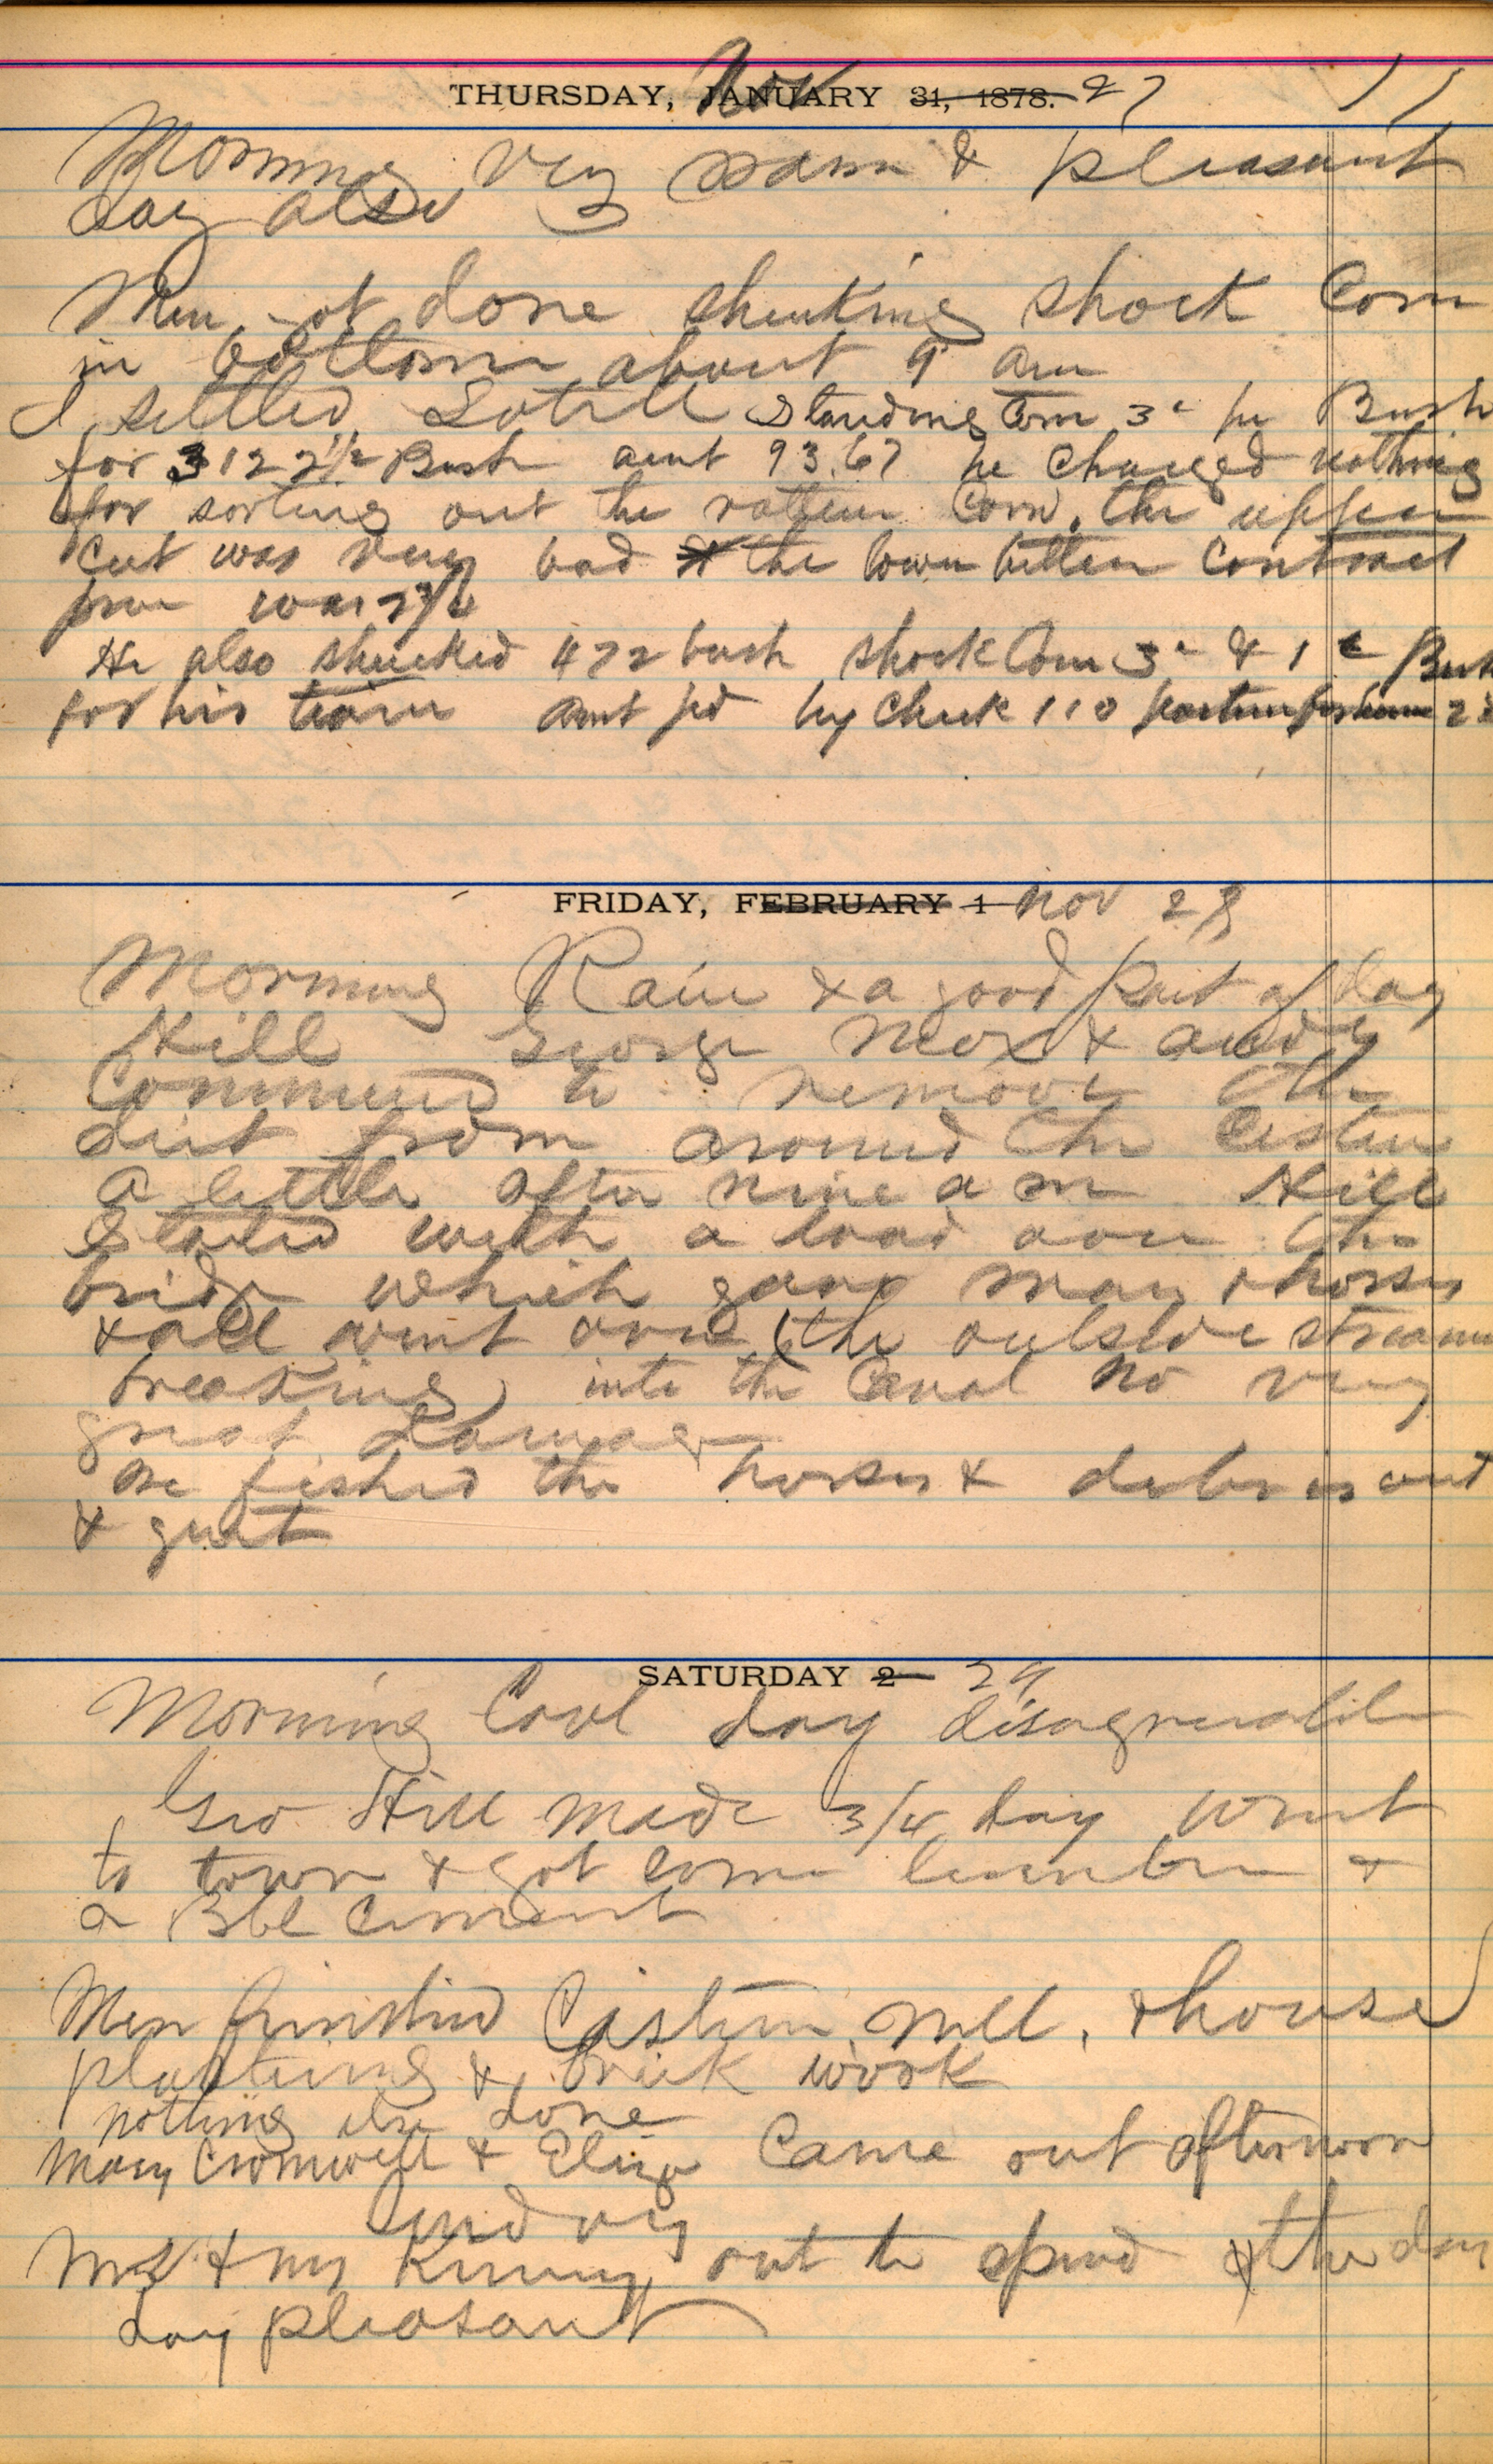 THURSDAY, JANUARY 31, 1878. Nov 27 11
Morning very warm & pleasant
day also
Men got done shucking shock Corn
in bottom about 9 am
I settled standing Corn 3c per Bush
for 3122 1/2 Bush amt 93.67 he Charged nothing
for sorting out the rotten Corn, the upper
Cut was very bad the lower better Contract
price was
He also shucked 472 bush shock Corn 3c & 1c Bush
for his team amt pd by Check 110
FRIDAY, FEBRUARY 1 Nov 28
Morning Rain & a good part of day
Hill George Mox & andy
Commenced to remove the
dirt from around the Cistern
a little after nine a m Hill
Started with a load over the
bridge which gave way & horses
& all went over (the outside stream
breaking) into the Canal No very
great Damage
We fished the horses & debris out
& quit
SATURDAY 2 29
Morning Cool day disagreeable
Geo Hill made 3/4 day went
to town & got some lumber &
a Bbl Cement
Men finished Cistern, well, & house
plastering & brick work
nothing else done
Mary Cromwell & Eliza Came out afternoon
Sunday
Mr & Mrs Kinney out to spend the day
day pleasant